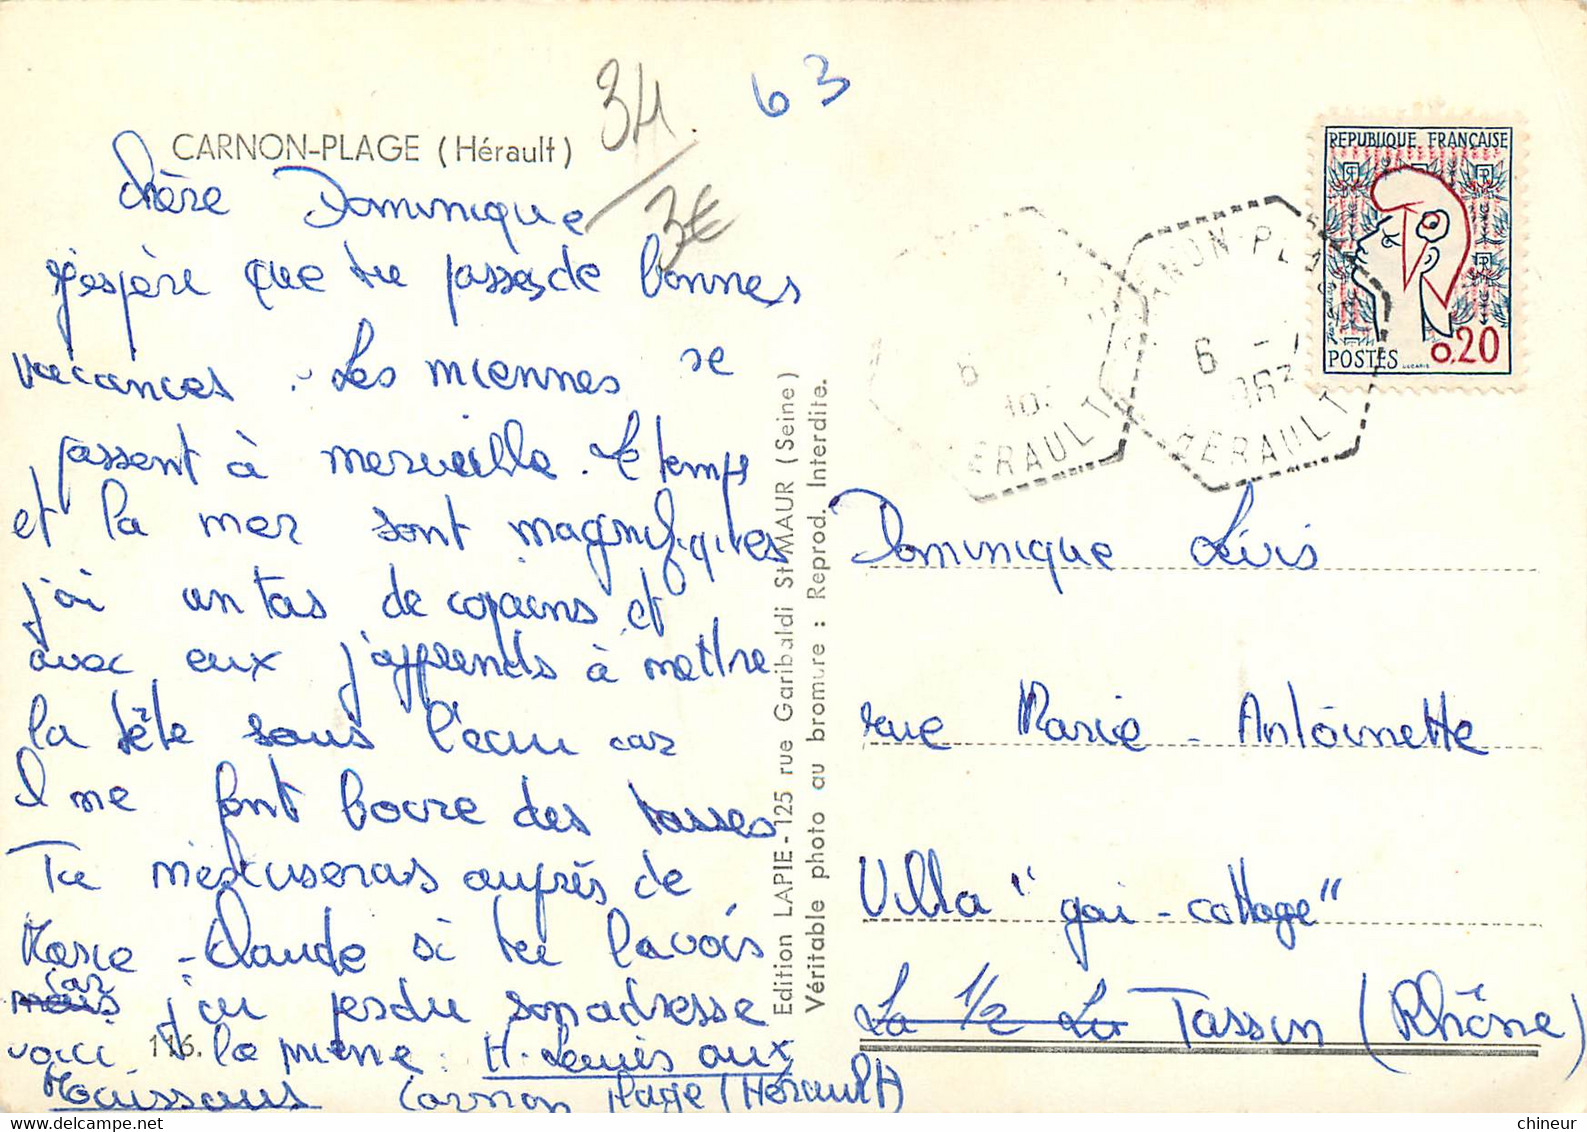 34
3€
63
CARNON-PLAGE (Hérault)
Chère Dominique
J'espère que tu passes de bonnes
vacances. Les miennes se
passent à merveille. Le temps
et la mer sont magnifiques
j'ai un tas de copains et
avec eux j'apprends à mettre
la tête sous l'eau car
Il me font boire des tasses
Tu m'excuseras auprès de
Marie-Claude si tu la vois
mais car j'ai perdu son adresse
voici la mienne: H.
aux
Carnon plage (Hérault)
116.
Edition LAPIE - 125 rue Garibaldi St-MAUR (Seine)
Véritable photo au bromure : Reprod. Interdite.
REPUBLIQUE FRANÇAISE
0,20
POSTES
CARNON-PLAGE
6 -
1963
HÉRAULT
6
HERAULT
Dominique
rue Marie-Antoinette
Villa "gai-cottage"
La 1/2 La Tassin (Rhône)
chineur